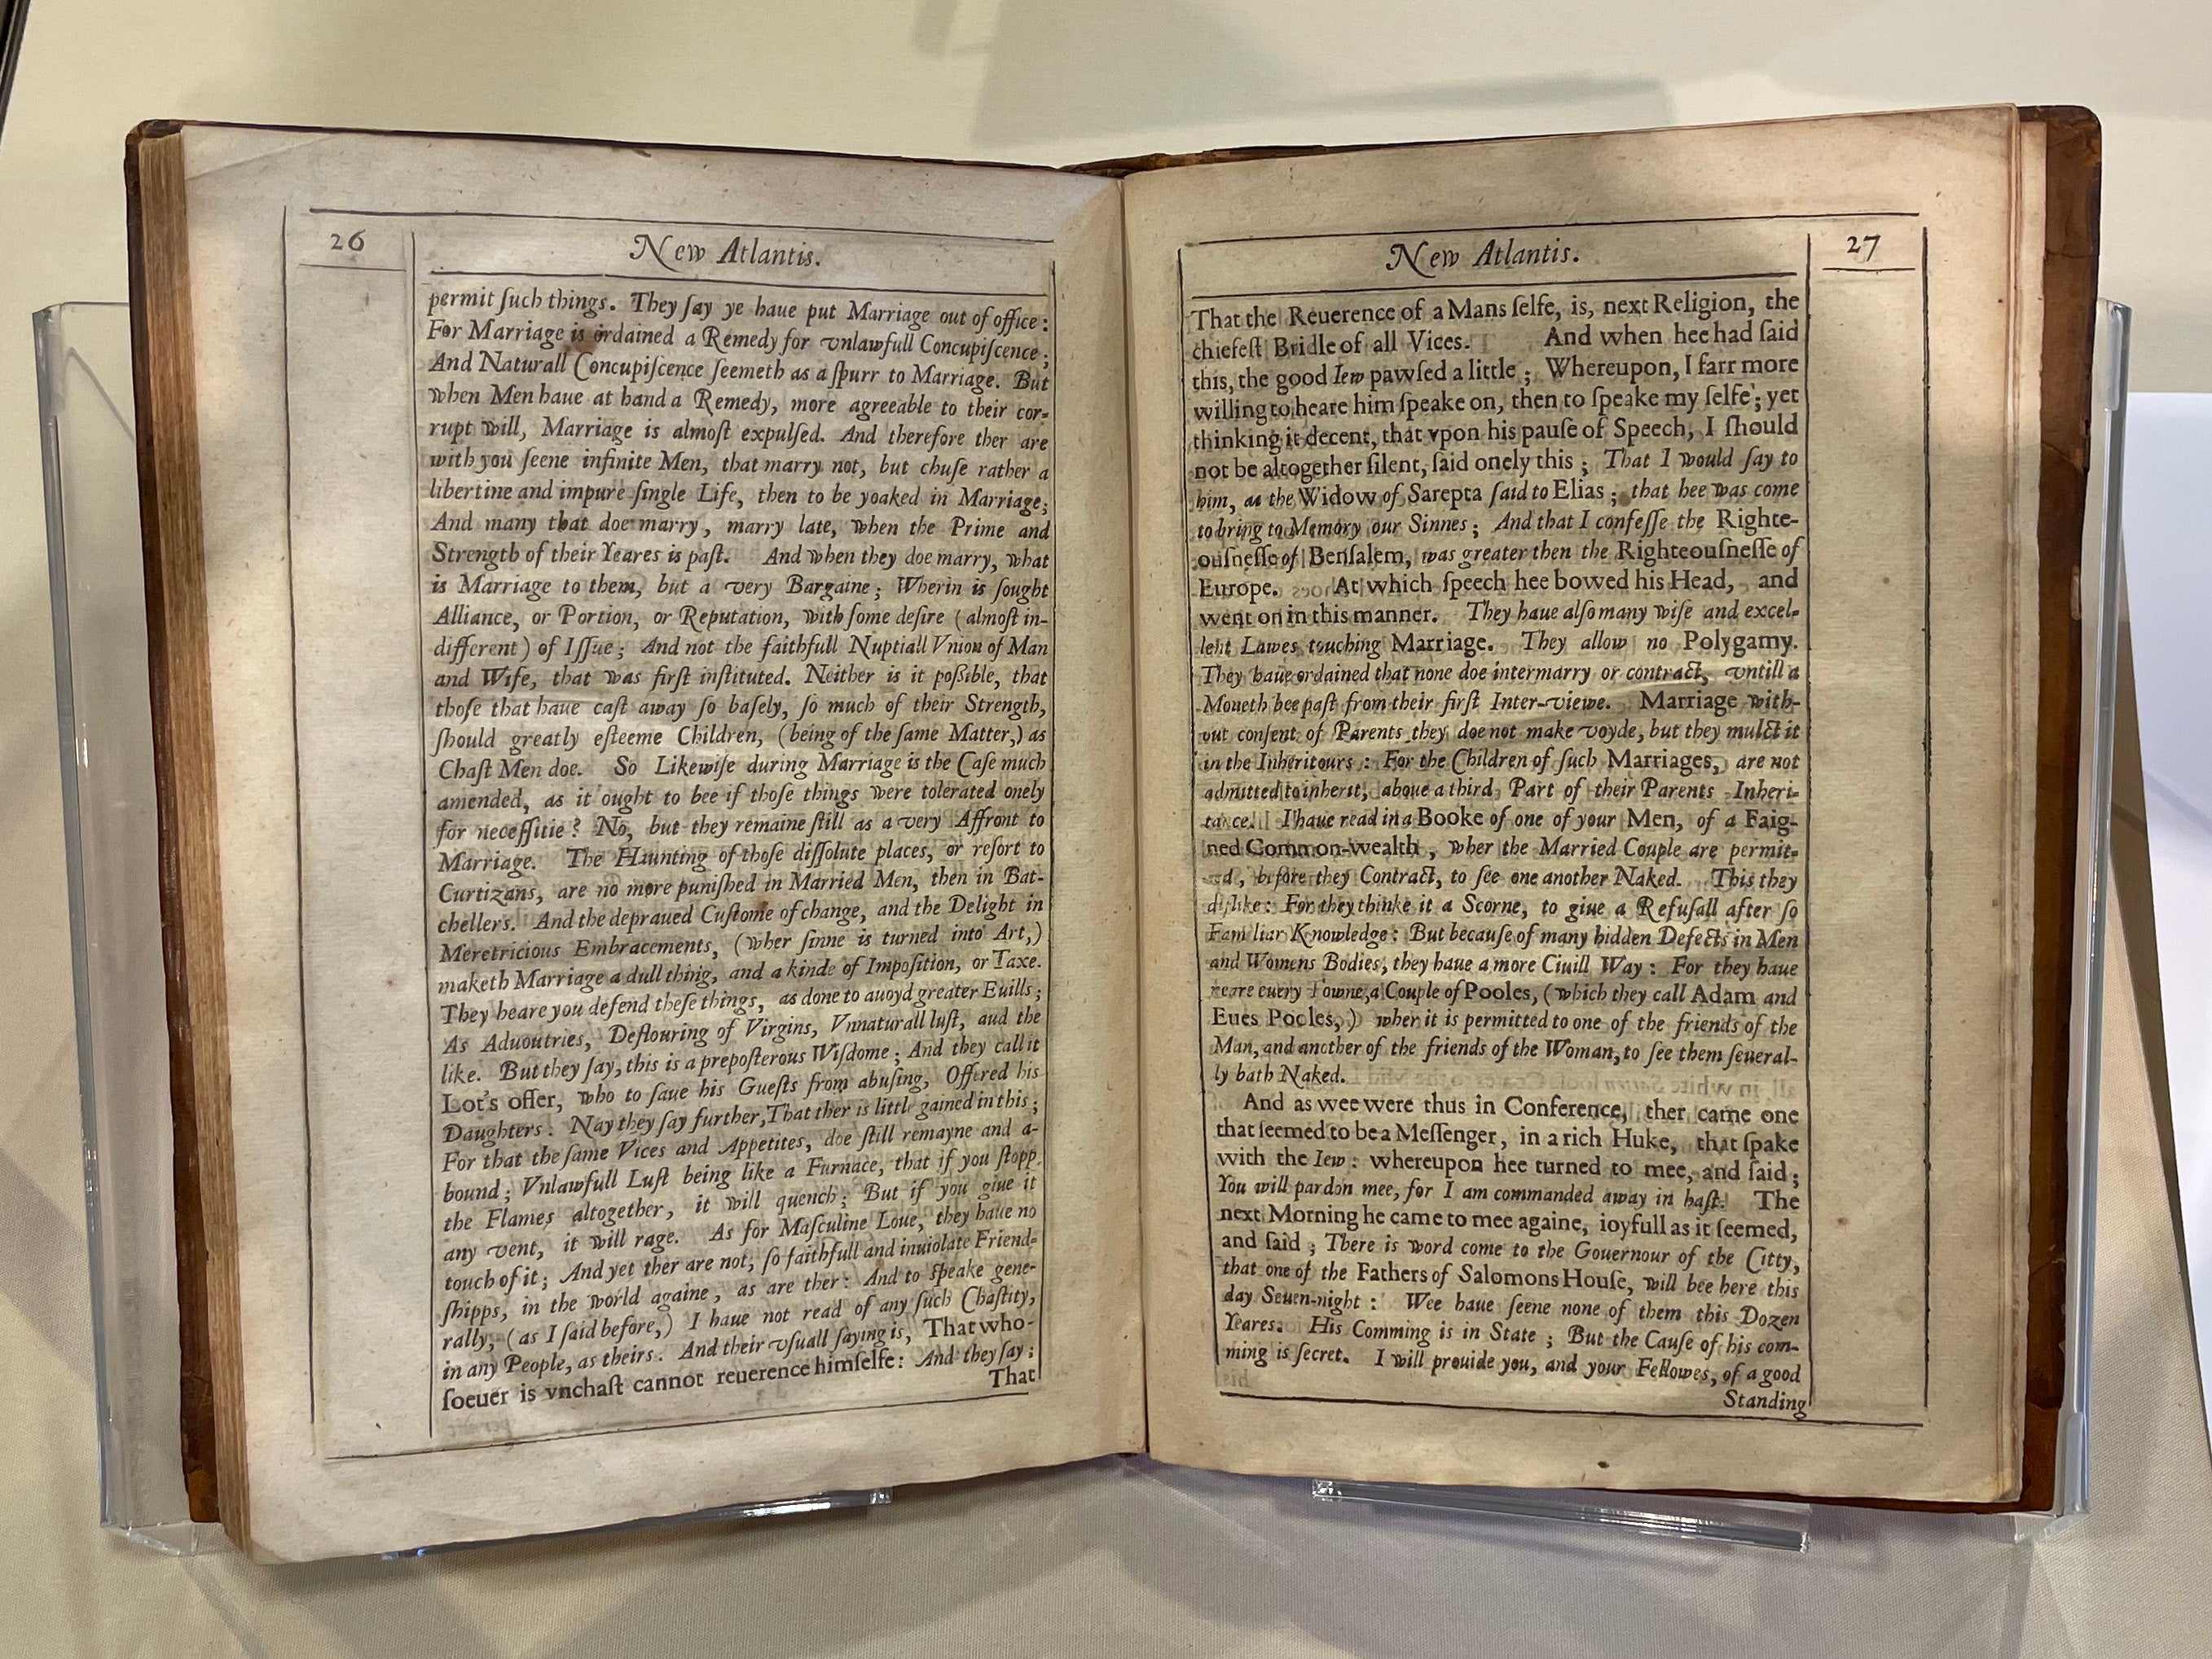 26
New Atlantis.
permit ſuch things. They ſay ye haue put Marriage out of office:
For Marriage is ordained a Remedy for vnlawfull Concupiſcence;
And Naturall Concupiſcence ſeemeth as a ſpurr to Marriage. But
when Men haue at hand a Remedy, more agreeable to their cor-
rupt will, Marriage is almoſt expulſed. And therefore ther are
with you ſeene infinite Men, that marry not, but chuſe rather a
libertine and impure ſingle Life, then to be yoaked in Marriage;
And many that doe marry, marry late, when the Prime and
Strength of their Yeares is paſt. And when they doe marry, what
is Marriage to them, but a very Bargaine; Wherin is ſought
Alliance, or Portion, or Reputation, with ſome deſire (almoſt in-
different) of Iſſue; And not the faithfull Nuptiall Vnion of Man
and Wife, that was firſt inſtituted. Neither is it poſsible, that
thoſe that haue caſt away ſo baſely, ſo much of their Strength,
ſhould greatly eſteeme Children, (being of the ſame Matter,) as
Chaſt Men doe. So Likewiſe during Marriage is the Caſe much
amended, as it ought to bee if thoſe things were tolerated onely
for neceſſitie? No, but they remaine ſtill as a very Affront to
Marriage. The Haunting of thoſe diſſolute places, or reſort to
Curtizans, are no more puniſhed in Married Men, then in Bat-
chellers. And the depraued Cuſtome of change, and the Delight in
Meretricious Embracements, (wher ſinne is turned into Art,)
maketh Marriage a dull thing, and a kinde of Impoſition, or Taxe.
They heare you defend theſe things, as done to auoyd greater Euills;
As Aduoutries, Deflouring of Virgins, Vnnaturall luſt, aud the
like. But they ſay, this is a prepoſterous Wiſdome; And they call it
Lot's offer, who to ſaue his Gueſts from abuſing, Offered his
Daughters: Nay they ſay further, That ther is little gained in this;
For that the ſame Vices and Appetites, doe ſtill remayne and a-
bound; Vnlawfull Luſt being like a Furnace, that if you ſtopp
the Flames altogether, it will quench; But if you giue it
any vent, it will rage. As for Maſculine Loue, they haue no
touch of it; And yet ther are not, ſo faithfull and inuiolate Friend-
ſhipps, in the world againe, as are ther: And to ſpeake gene-
rally, (as I ſaid before,) I haue not read of any ſuch Chaſtity,
in any People, as theirs. And their vſuall ſaying is, That who-
ſoeuer is vnchaſt cannot reuerence himſelfe: And they ſay;
That
New Atlantis.
27
That the Reuerence of a Mans ſelfe, is, next Religion, the
chiefeſt Bridle of all Vices. And when hee had ſaid
this, the good Iew pawſed a little; Whereupon, I farr more
willing to heare him ſpeake on, then to ſpeake my ſelfe; yet
thinking it decent, that vpon his pauſe of Speech, I ſhould
not be altogether ſilent, ſaid onely this; That I would ſay to
him, as the Widow of Sarepta ſaid to Elias; that hee was come
to bring to Memory our Sinnes; And that I confeſſe the Righte-
ouſneſſe of Benſalem, was greater then the Righteouſneſſe of
Europe. At which ſpeech hee bowed his Head, and
went on in this manner. They haue alſo many wiſe and excel-
lent Lawes touching Marriage. They allow no Polygamy.
They haue ordained that none doe intermarry or contract, vntill a
Moneth bee paſt from their firſt Inter-viewe. Marriage with-
out conſent of Parents they doe not make voyde, but they mulct it
in the Inheritours: For the Children of ſuch Marriages, are not
admitted to inherit, aboue a third Part of their Parents Inheri-
tance. I haue read in a Booke of one of your Men, of a Faig-
ned Common-wealth, wher the Married Couple are permit-
ted, before they Contract, to ſee one another Naked. This they
diſlike: For they thinke it a Scorne, to giue a Refuſall after ſo
Familiar Knowledge: But becauſe of many hidden Defects in Men
and Womens Bodies, they haue a more Ciuill Way: For they haue
neere euery Towne, a Couple of Pooles, (which they call Adam and
Eues Pooles,) wher it is permitted to one of the friends of the
Man, and another of the friends of the Woman, to ſee them ſeueral-
ly bath Naked.
And as wee were thus in Conference, ther came one
that ſeemed to be a Meſſenger, in a rich Huke, that ſpake
with the Iew: whereupon hee turned to mee, and ſaid;
You will pardon mee, for I am commanded away in haſt. The
next Morning he came to mee againe, ioyfull as it ſeemed,
and ſaid; There is word come to the Gouernour of the Citty,
that one of the Fathers of Salomons Houſe, will bee here this
day Seuen-night: Wee haue ſeene none of them this Dozen
Yeares. His Comming is in State; But the Cauſe of his com-
ming is ſecret. I will prouide you, and your Fellowes, of a good
Standing